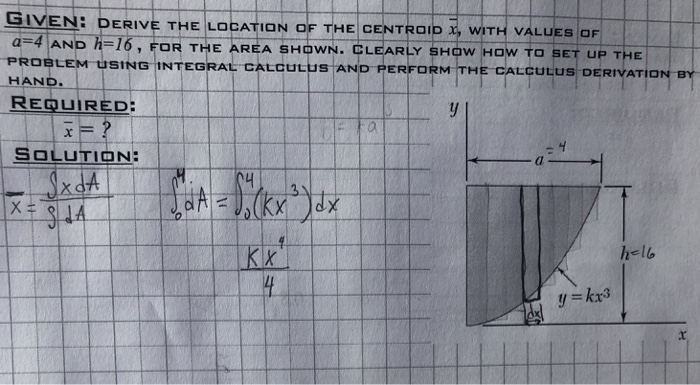 GIVEN: DERIVE THE LOCATION OF THE CENTROID x̄, WITH VALUES OF
a=4 AND h=16, FOR THE AREA SHOWN. CLEARLY SHOW HOW TO SET UP THE
PROBLEM USING INTEGRAL CALCULUS AND PERFORM THE CALCULUS DERIVATION BY
HAND.
REQUIRED:
x̄ = ?
SOLUTION:
x̄ = ∫xdA / ∫dA
∫₀⁴ dA = ∫₀⁴ (kx³) dx
Kx⁴ / 4
y
a = 4
h=16
y = kx³
dx
x